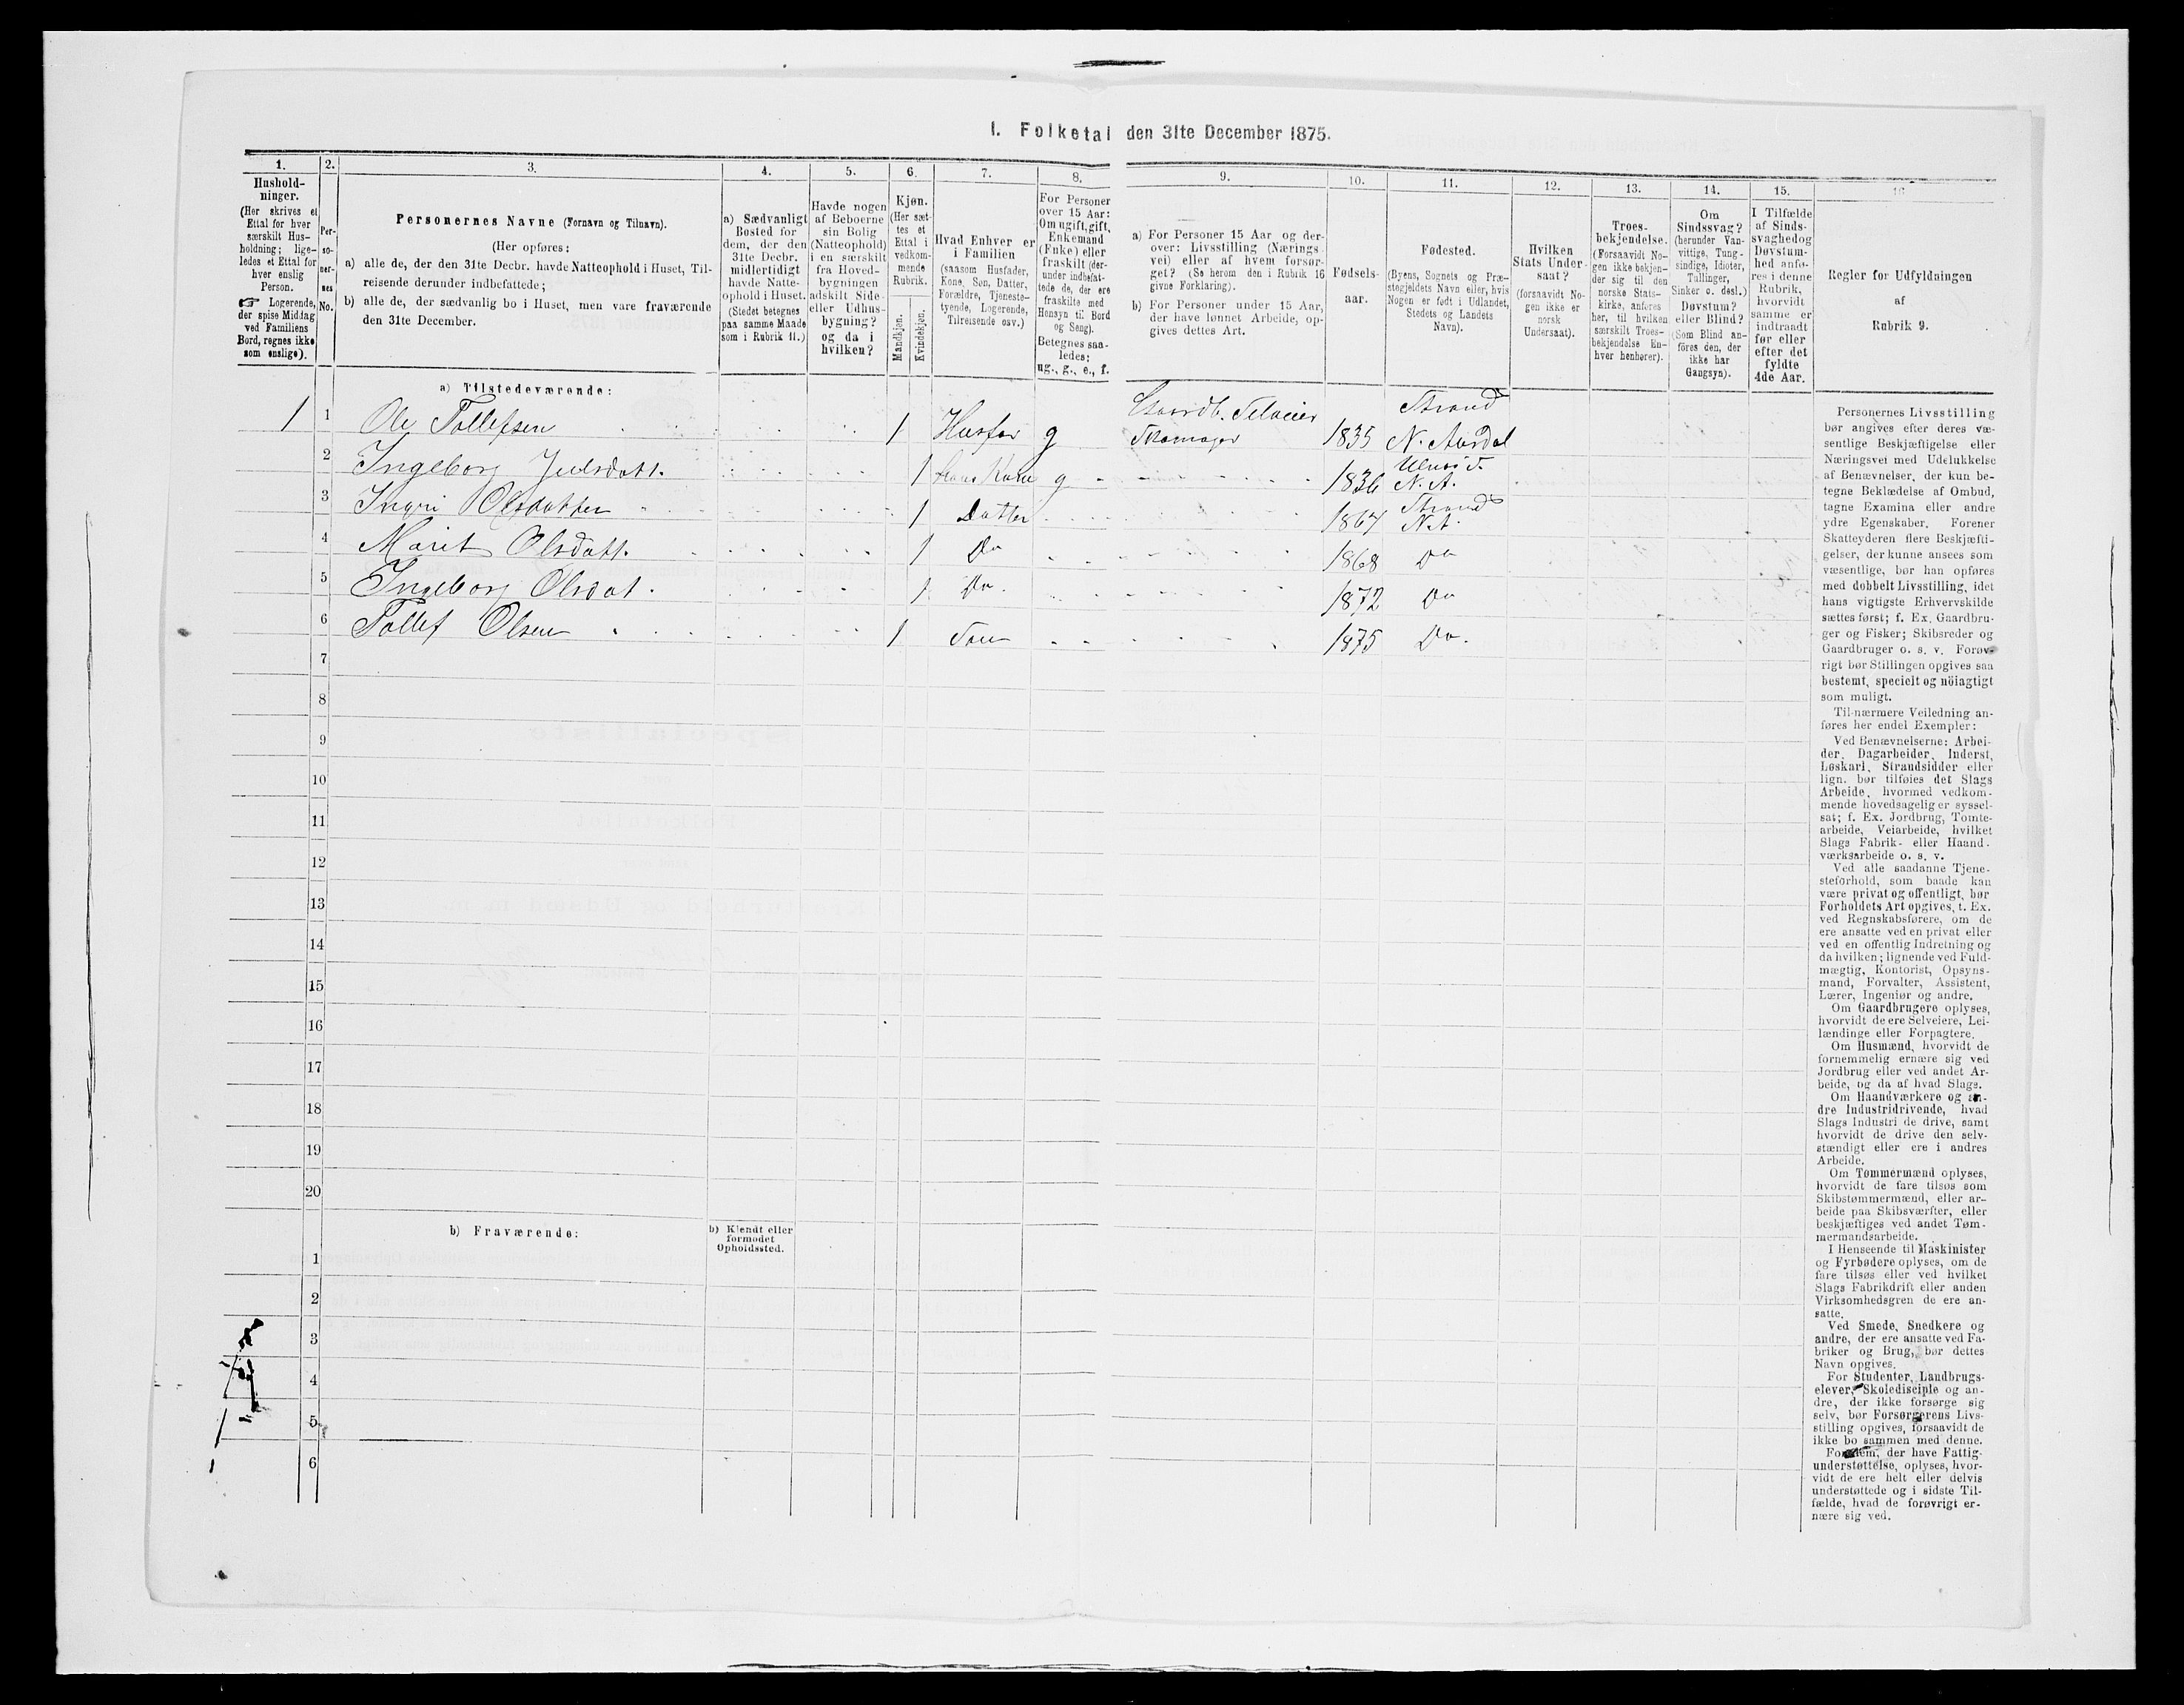 I. Folketal den 31te December 1875.
1.
Hushold-
ninger.
(Her skrives et
Ettal for hver
særskilt Hus-
holdning; lige-
ledes et Ettal for
hver enslig
Person.
☞ Logerende,
der spise Middag
ved Familiens
Bord, regnes ikke
som enslige).
2.
Per-
so-
ner-
nes
No.
3.
Personernes Navne (Fornavn og Tilnavn).
(Her opføres:
a) alle de, der den 31te Decbr. havde Natteophold i Huset, Til-
reisende derunder indbefattede;
b) alle de, der sædvanlig bo i Huset, men vare fraværende
den 31te December.
4.
a) Sædvanligt
Bosted for
dem, der den
31te Decbr.
midlertidigt
havde Natte-
ophold i Huset.
(Stedet betegnes
paa samme Maade
som i Rubrik 11.)
5.
Havde nogen
af Beboerne
sin Bolig
(Natteophold)
i en særskilt
fra Hoved-
bygningen
adskilt Side-
eller Udhus-
bygning?
og da i
hvilken?
6.
Kjøn.
(Her sæt-
tes et
Ettal i
vedkom-
mende
Rubrik.
Mandkjøn.
Kvindekjøn.
7.
Hvad Enhver er
i Familien
(saasom Husfader,
Kone, Søn, Datter,
Forældre, Tjeneste-
tyende, Logerende,
Tilreisende osv.)
8.
For Personer
over 15 Aar:
Om ugift, gift,
Enkemand
(Enke) eller
fraskilt (der-
under indbefat-
tede de, der ere
fraskilte med
Hensyn til Bord
og Seng).
Betegnes saa-
ledes:
ug., g., e., f.
9.
a) For Personer 15 Aar og der-
over: Livsstilling (Nærings-
vei) eller af hvem forsør-
get? (Se herom den i Rubrik 16
givne Forklaring).
b) For Personer under 15 Aar,
der have lønnet Arbeide, op-
gives dettes Art.
10.
Fødsels-
aar.
11.
Fødested.
(Byens, Sognets og Præ-
stegjeldets Navn eller, hvis
Nogen er født i Udlandet,
Stedets og Landets
Navn).
12.
Hvilken
Stats Under-
saat?
(forsaavidt No-
gen ikke er
norsk
Undersaat).
13.
Troes-
bekjendelse.
(Forsaavidt No-
gen ikke bekjen-
der sig til den
norske Stats-
kirke, anføres
her, til hvilken
særskilt Troes-
bekjendelse En-
hver henhører).
14.
Om
Sindssvag?
(herunder Van-
vittige, Tung-
sindige, Idioter,
Tullinger,
Sinker o. desl.)
Døvstum?
eller Blind?
(Som Blind an-
føres den, der
ikke har
Gangsyn).
15.
I Tilfælde
af Sinds-
svaghed og
Døvstum-
hed anfø-
res i denne
Rubrik,
hvorvidt
samme er
indtraadt
før eller
efter det
fyldte
4de Aar.
16
Regler for Udfyldningen
af
Rubrik 9.
a) Tilstedeværende:
1 1 Ole Tollefsen 1 Husfar g Gaardb. Selveier Skomager 1835 Strand N. Aurdal
2 Ingeborg Julsdatt. 1 Hans Kone g 1836 N. A.
3 Ingri Olsdatter 1 Datter 1867 Strand N. A.
4 Marit Olsdatt. 1 Do 1868 Do
5 Ingeborg Olsdat. 1 Do. 1872 Do
6 Tollef Olsen 1 Søn 1875 Do.
7
8
9
10
11
12
13
14
15
16
17
18
19
20
b) Fraværende:
b) Kjendt eller
formodet
Opholdssted.
1
2
3
4
5
6
Personernes Livsstilling
bør angives efter deres væ-
sentlige Beskjæftigelse eller
Næringsvei med Udelukkelse
af Benævnelser, der kun be-
tegne Beklædelse af Ombud,
tagne Examina eller andre
ydre Egenskaber. Forener
Skatteyderen flere Beskjæfti-
gelser, der kunne ansees som
væsentlige, bør han opføres
med dobbelt Livsstilling, idet
hans vigtigste Erhvervskilde
sættes først; f. Ex. Gaardbru-
ger og Fisker; Skibsreder og
Gaardbruger o. s. v. Forøv-
rigt bør Stillingen opgives saa
bestemt, specielt og nöiagtigt
som muligt.
Til nærmere Veiledning an-
føres her endel Exempler:
Ved Benævnelserne: Arbei-
der, Dagarbeider, Inderst,
Løskarl, Strandsidder eller
lign. bør tilføies det Slags
Arbeide, hvormed vedkom-
mende hovedsagelig er syssel-
sat; f. Ex. Jordbrug, Tomte-
arbeide, Veiarbeide, hvilket
Slags Fabrik- eller Haand-
værksarbeide o. s. v.
Ved alle saadanne Tjene-
steforhold, som baade kan
være privat og offentligt, bør
Forholdets Art opgives, t. Ex.
ved Regnskabsførere, om de
ere ansatte ved en privat eller
ved en offentlig Indretning og
da hvilken; lignende ved Fuld-
mægtig, Kontorist, Opsyns-
mand, Forvalter, Assistent,
Lærer, Ingeniør og andre.
Om Gaardbrugere oplyses,
hvorvidt de ere Selveiere, Lei-
lændinge eller Forpagtere.
Om Husmænd, hvorvidt de
fornemmelig ernære sig ved
Jordbrug eller ved andet Ar-
beide, og da af hvad Slags.
Om Haandværkere og an-
dre Industridrivende, hvad
Slags Industri de drive, samt
hvorvidt de drive den selv-
stændigt eller ere i andres
Arbeide.
Om Tømmermænd oplyses,
hvorvidt de fare tilsøs som
Skibstømmermænd, eller ar-
beide paa Skibsværfter, eller
beskjæftiges ved andet Tøm-
mermandsarbeide.
I Henseende til Maskinister
og Fyrbødere oplyses, om de
fare tilsøs eller ved hvilket
Slags Fabrikdrift eller anden
Virksomhedsgren de ere an-
satte.
Ved Smede, Snedkere og
andre, der ere ansatte ved Fa-
briker og Brug, bør dettes
Navn opgives.
For Studenter, Landbrugs-
elever, Skoledisciple og an-
dre, der ikke forsørge sig
selv, bør Forsørgerens Livs-
stilling opgives, forsaavidt de
ikke bo sammen med denne.
For dem, der have Fattig-
understøttelse, oplyses, hvor-
vidt de ere helt eller delvis
understøttede og i sidste Til-
fælde, hvad de forøvrigt er-
nære sig ved.